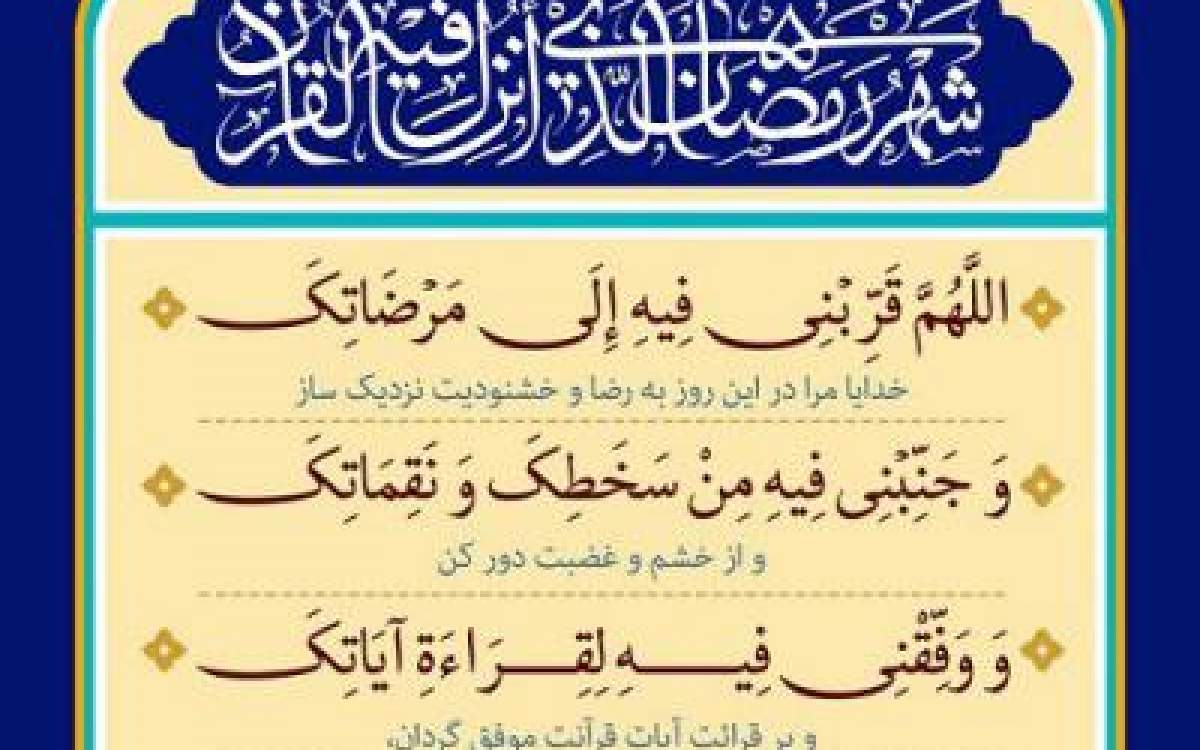 شهر رمضان الذي أنزل فيه القرآن
اللَّهُمَّ قَرِّبْنِی فِیهِ إِلَی مَرْضَاتِکَ
خدایا مرا در این روز به رضا و خشنودیت نزدیک ساز
وَ جَنِّبْنِی فِیهِ مِنْ سَخَطِکَ وَ نَقِمَاتِکَ
و از خشم و غضبت دور کن
وَ وَفِّقْنِی فِیهِ لِقِرَاءَةِ آیَاتِکَ
و بر قرائت آیات قرآنت موفق گردان،